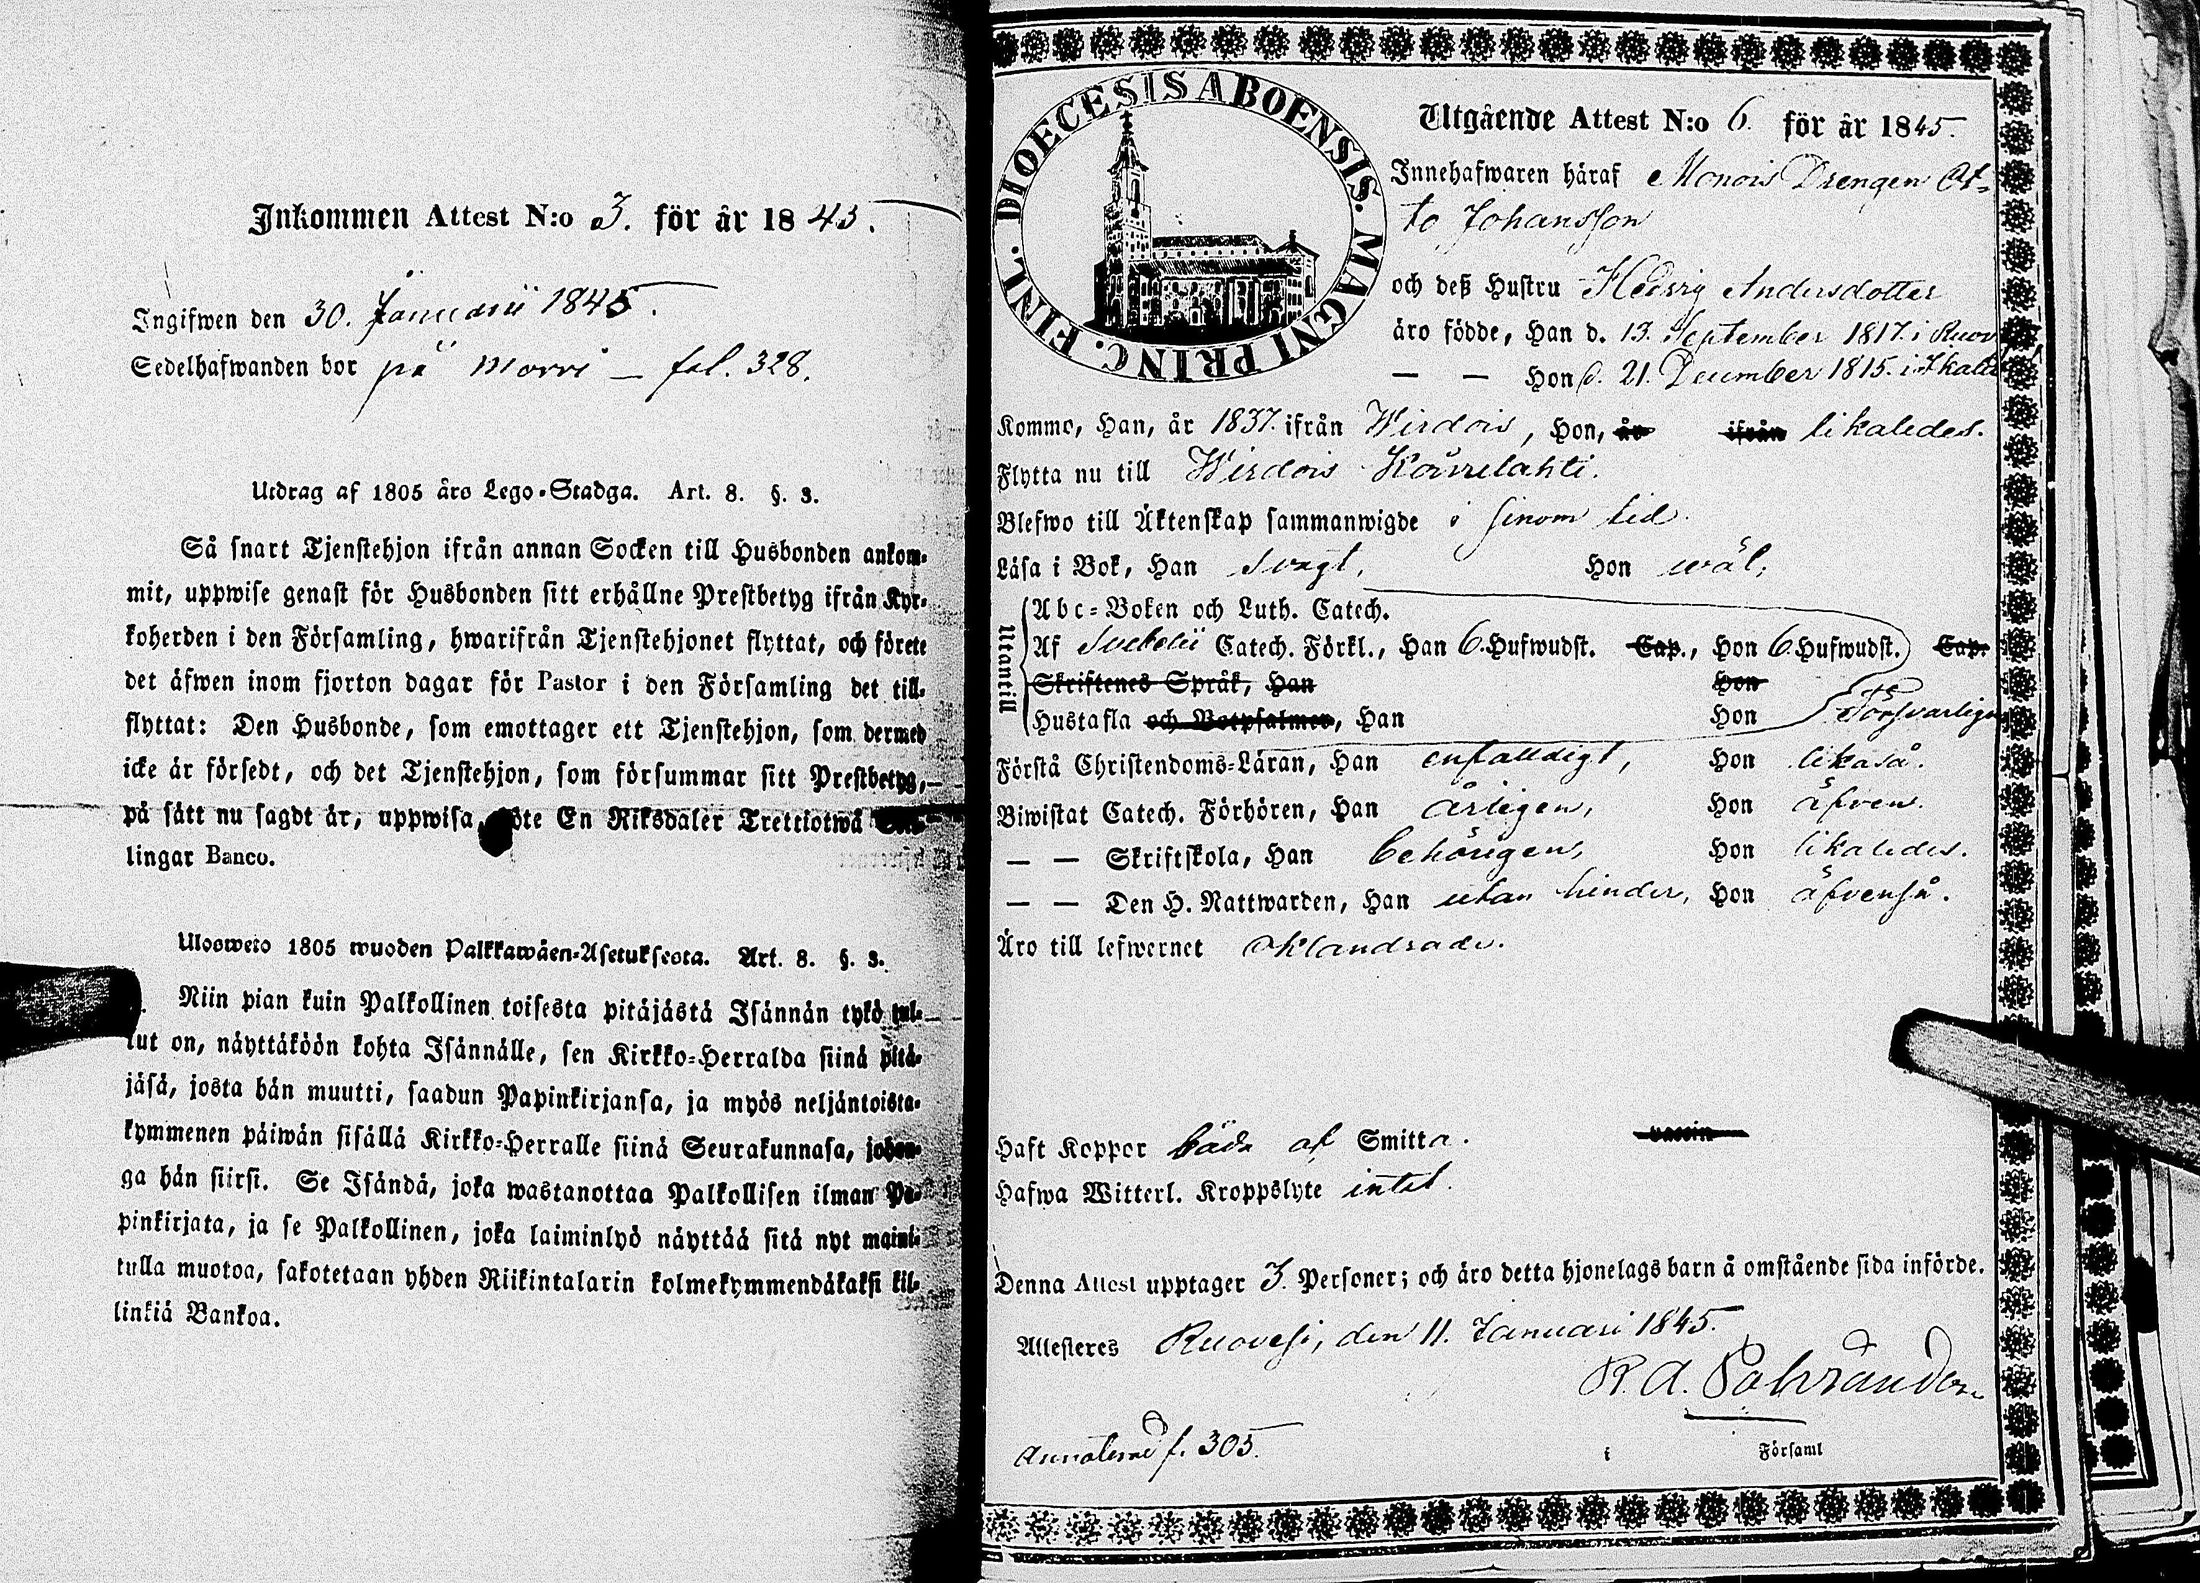 Inkommen Attest N:o 3. för år 1845.
Ingifwen den 30. Januarii 1845.
Sedelhafwanden bor på Morri — fol. 328.
Utdrag af 1805 års Lego-Stadga. Art. 8. §. 3.
Så snart Tjenstehjon ifrån annan Socken till Husbonden ankom-
mit, uppwise genast för Husbonden sitt erhållne Prestbetyg ifrån Kyr-
koherden i den Församling, hwarifrån Tjenstehjonet flyttat, och förete
det äfwen inom fjorton dagar för Pastor i den Församling det till-
flyttat: Den Husbonde, som emottager ett Tjenstehjon, som dermed
icke är försedt, och det Tjenstehjon, som försummar sitt Prestbetyg,
på sätt nu sagdt är, uppwisa, böte En Riksdaler Trettiotwå
lingar Banco.
Ulosweto 1805 wuoden Palkkawäen-Asetuksesta. Art. 8. §. 3.
Niin pian kuin Palkollinen toisesta pitäjästä Isännän tykö tul-
lut on, näyttäköön kohta Isännälle, sen Kirkko-Herralda siinä pitä-
jäsä, josta hän muutti, saadun Papinkirjansa, ja myös neljäntoista-
kymmenen päiwän sisällä Kirkko-Herralle siinä Seurakunnasa, johon-
ga hän siirsi. Se Isändä, joka wastanottaa Palkollisen ilman Pa-
pinkirjata, ja se Palkollinen, joka laiminlyö näyttää sitä nyt mainit-
tulla muotoa, sakotetaan yhden Riikintalarin kolmekymmendäkaksi kil-
linkiä Bankoa.
DIOECESIS ABOENSIS. MAGNI PRINC. FINL.
Utgående Attest N:o 6. för år 1845.
Innehafwaren häraf Monois Drengen Ot-
to Johansson
och deß Hustru Hedvig Andersdotter
äro födde, Han d. 13. September 1817. i Ruov
— — Hon d. 21. December 1815. i Ikalis
Komme, Han, år 1837. ifrån Wirdois, Hon, år ifrån likaledes.
Flytta nu till Wirdois Kourelahti.
Blefwo till Äktenskap sammanwigde i sinom tid.
Läsa i Bok, Han svagt, Hon wäl,
Utantill
Abc-Boken och Luth. Catech.
Af Svebelii Catech. Förkl., Han 6. Hufwudst. Cap., Hon 6. Hufwudst. Cap.
Skriftenes Språk, Han Hon
Hustafla och Botpsalmer, Han Hon Försvarligen
Förstå Christendoms-Läran, Han enfaldigt, Hon likaså.
Biwistat Catech. Förhören, Han årligen, Hon äfven.
— — Skriftskola, Han behörigen, Hon likaledes.
— — Den H. Nattwarden, Han utan hinder, Hon äfvenså.
Äro till lefwernet oklandrade.
Haft Koppor båda af Smitta. vaccin
Hafwa Witterl. Kroppslyte intet.
Denna Attest upptager 3. Personer; och äro detta hjonelags barn å omstående sida införde.
Attesteres Ruovesi, den 11. Januari 1845.
R. A.
Annoterad f. 305.
i Församl